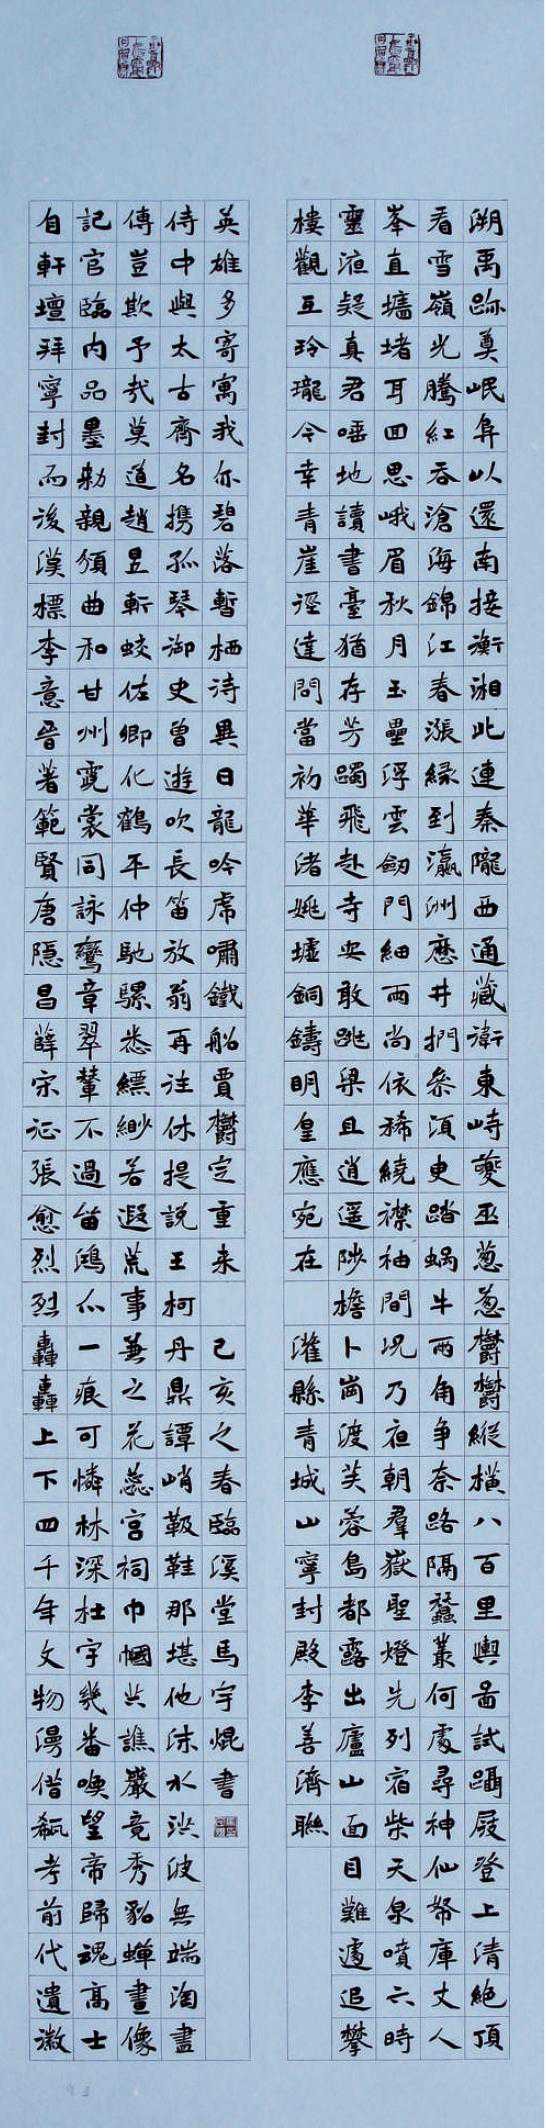 溯禹跡奠岷阜以還南接衡湘北連秦隴西通藏衛東峙夔巫葱葱欝欝縱橫八百里輿啚試躡屐登上清絕頂
看雪嶺光騰紅吞滄海錦江春漲緑到瀛洲歷井捫參須更踏蝸牛兩角争奈路隔蠶叢何處尋神仙帑庫丈人
峯直墻堵耳回思峨眉秋月玉壘浮雲劒門細雨尚依稀繞襟袖間況乃夜朝羣嶽聖燈先列宿柴天泉噴六時
靈液疑真君唾地讀書臺猶存芳躅飛赴寺安敢跳梁且逍遥陟檐卜崗渡芙蓉島都露出廬山面目難遽追攀
樓觀互玲瓏今幸青崖徑達問當初華渚姚墟銅鑄明皇應宛在
灌縣青城山寧封殿李善濟聯
自軒壇拜寧封而後漢標李意晉著範賢唐隱昌薛宋征張愈烈烈轟轟上下四千年文物漫借瓻考前代遺徽
記官臨内品墨勅親頒曲和甘州霓裳同詠鸞章翠輦不過留鴻爪一痕可憐林深杜宇幾番喚望帝歸魂高士
傳豈欺予哉莫道趙昱斬蛟佐卿化鶴平仲馳騾悉縹緲若遐荒事兼之花蕊宮祠巾幗共譙巖竟秀貂蟬畫像
侍中與太古齊名携孤琴御史曾遊吹長笛放翁再注休提說王柯丹鼎譚峭靸鞋那堪他沫水洪波無端淘盡
英雄多寄寓我亦碧落暫栖遲異日龍吟虎嘯鐵船賈欝定重来
己亥之春臨溪堂馬宇焜書